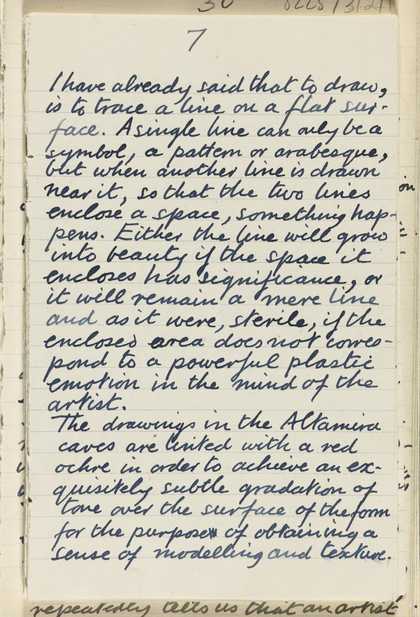 7
I have already said that to draw,
is to trace a line on a flat sur-
face. A single line can only be a
symbol, a pattern or arabesque,
but when another line is drawn
near it, so that the two lines
enclose a space, something hap-
pens. Either the line will grow
into beauty if the space it
encloses has significance, or
it will remain a mere line
and as it were, sterile, if the
enclosed area does not corres-
pond to a powerful plastic
emotion in the mind of the
artist.
The drawings in the Altamira
caves are tinted with a red
ochre in order to achieve an ex-
quisitely subtle gradation of
tone over the surface of the form
for the purpose of obtaining a
sense of modelling and texture.
repeatedly tells us that an artist